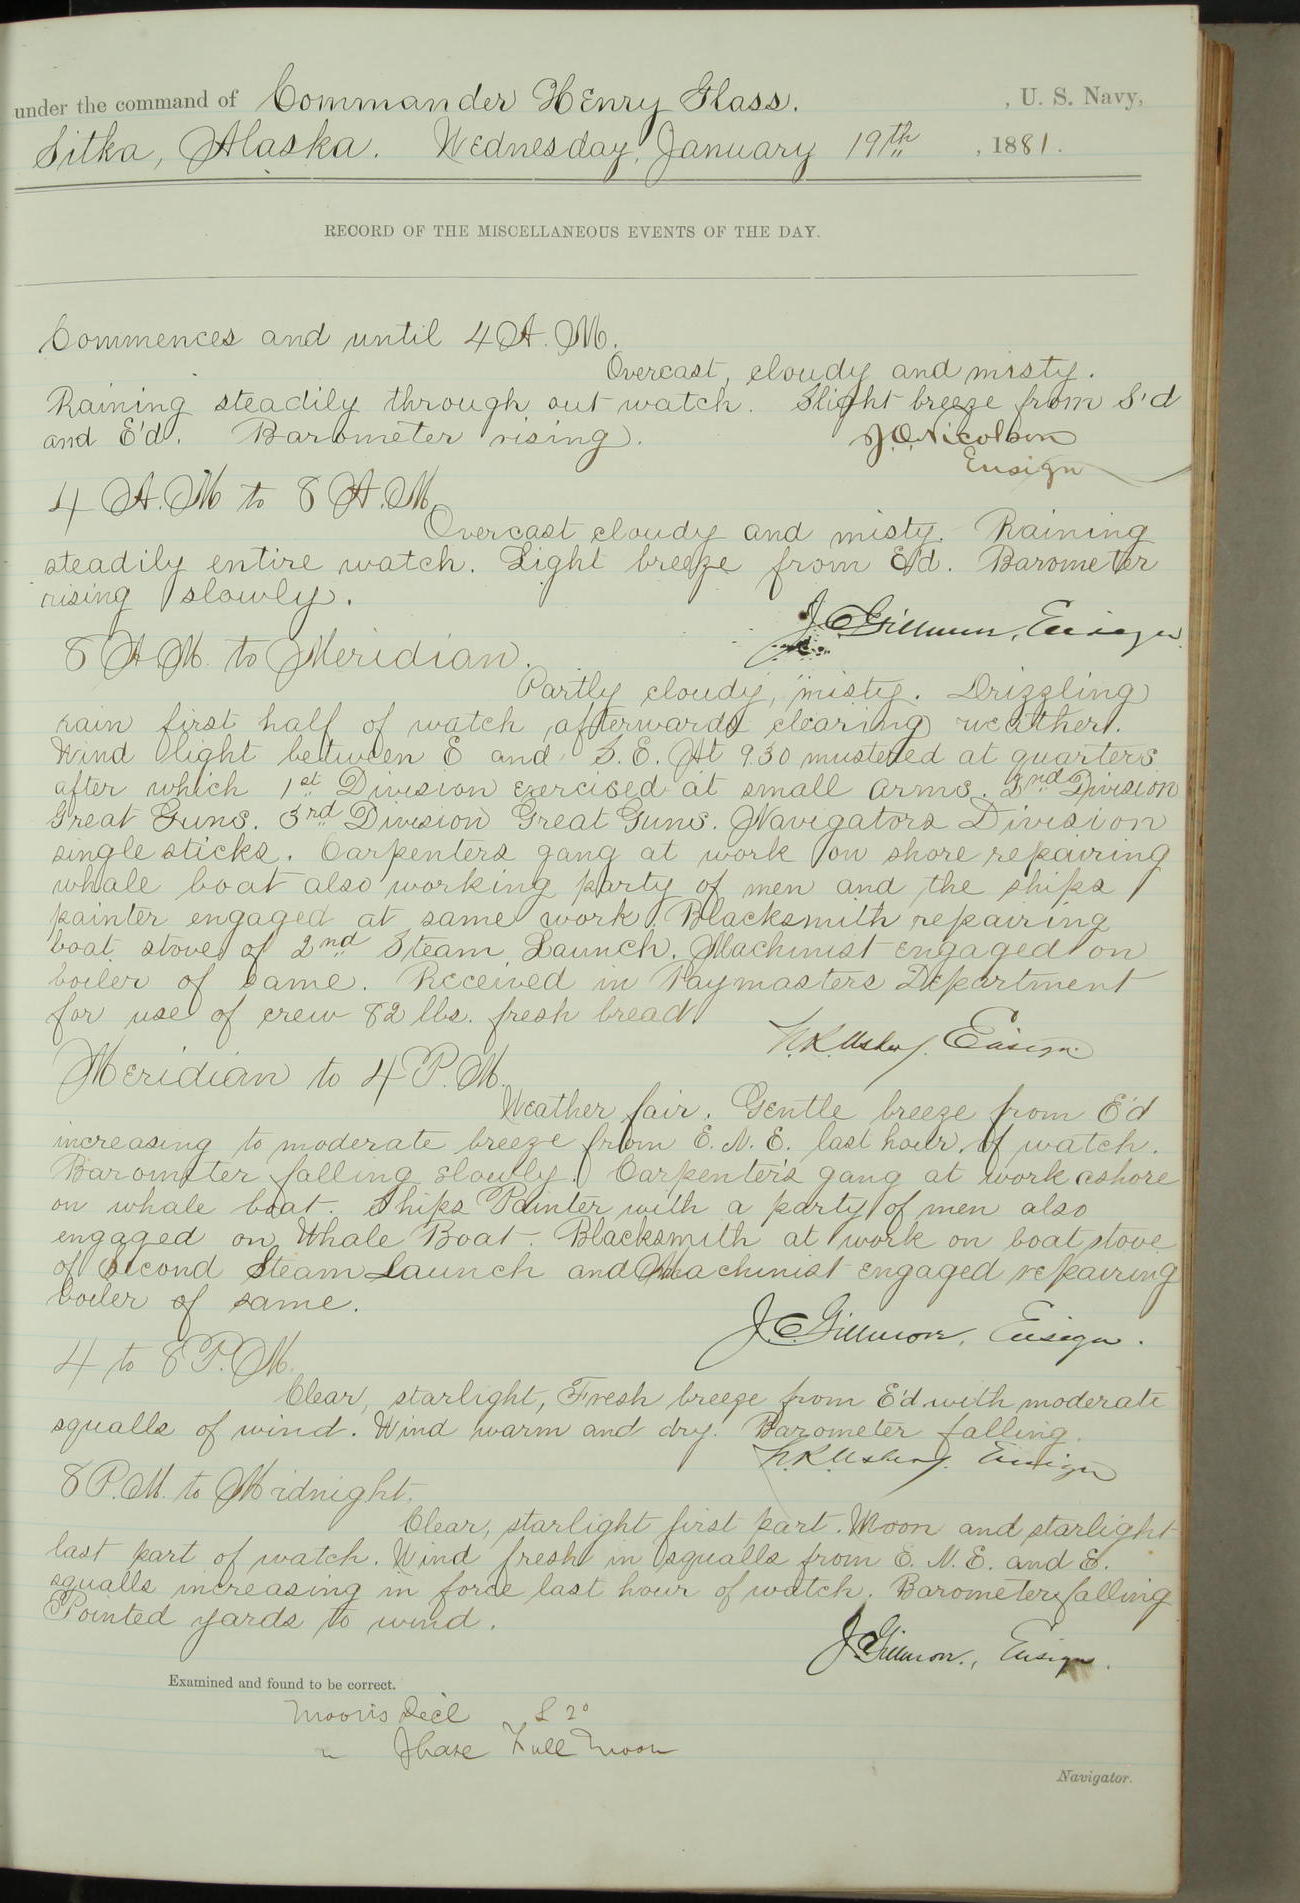 under the command of Commander Henry Glass. , U. S. Navy,
Sitka, Alaska. Wednesday, January 19th , 1881.
RECORD OF THE MISCELLANEOUS EVENTS OF THE DAY.
Commences and until 4 A.M.
Overcast, cloudy and misty.
Raining steadily through out watch. Slight breeze from S'd
and E'd. Barometer rising.
J.O. Nicolson
Ensign
4 A.M to 8 A.M.
Overcast cloudy and misty. Raining
steadily entire watch. Light breeze from E'd. Barometer
rising slowly.
J C Gillmore, Ensign
8 A.M. to Meridian.
Partly cloudy, misty. Drizzling
rain first half of watch afterwards clearing weather.
Wind light between E and S.E. At 9.30 mustered at quarters
after which 1st Division exercised at small arms. 2nd Division
Great Guns. 3rd Division Great Guns. Navigators Division
single sticks. Carpenters gang at work on shore repairing
whale boat also working party of men and the ships
painter engaged at same work. Blacksmith repairing
boat stove of 2nd Steam Launch. Machinist engaged on
boiler of same. Received in Paymasters Department
for use of crew 82 lbs. fresh bread
N.R. Usher, Ensign.
Meridian to 4 P.M.
Weather fair. Gentle breeze from E'd
increasing to moderate breeze from E. N. E. last hour of watch.
Barometer falling slowly. Carpenter's gang at work ashore
on whale boat. Ships Painter with a party of men also
engaged on Whale Boat. Blacksmith at work on boat stove
of Second Steam Launch and Machinist engaged repairing
boiler of same.
J.C. Gillmore, Ensign.
4 to 8 P.M.
Clear, starlight, Fresh breeze from E'd with moderate
squalls of wind. Wind warm and dry. Barometer falling.
N.R. Usher, Ensign
8 P.M. to Midnight.
Clear, starlight first part. Moon and starlight
last part of watch. Wind fresh in squalls from E. N. E. and E.
squalls increasing in force last hour of watch. Barometer falling
Pointed yards to wind.
J C Gillmore, Ensign.
Examined and found to be correct.
Moon's Decl 2°
" Phase Full Moon
Navigator.